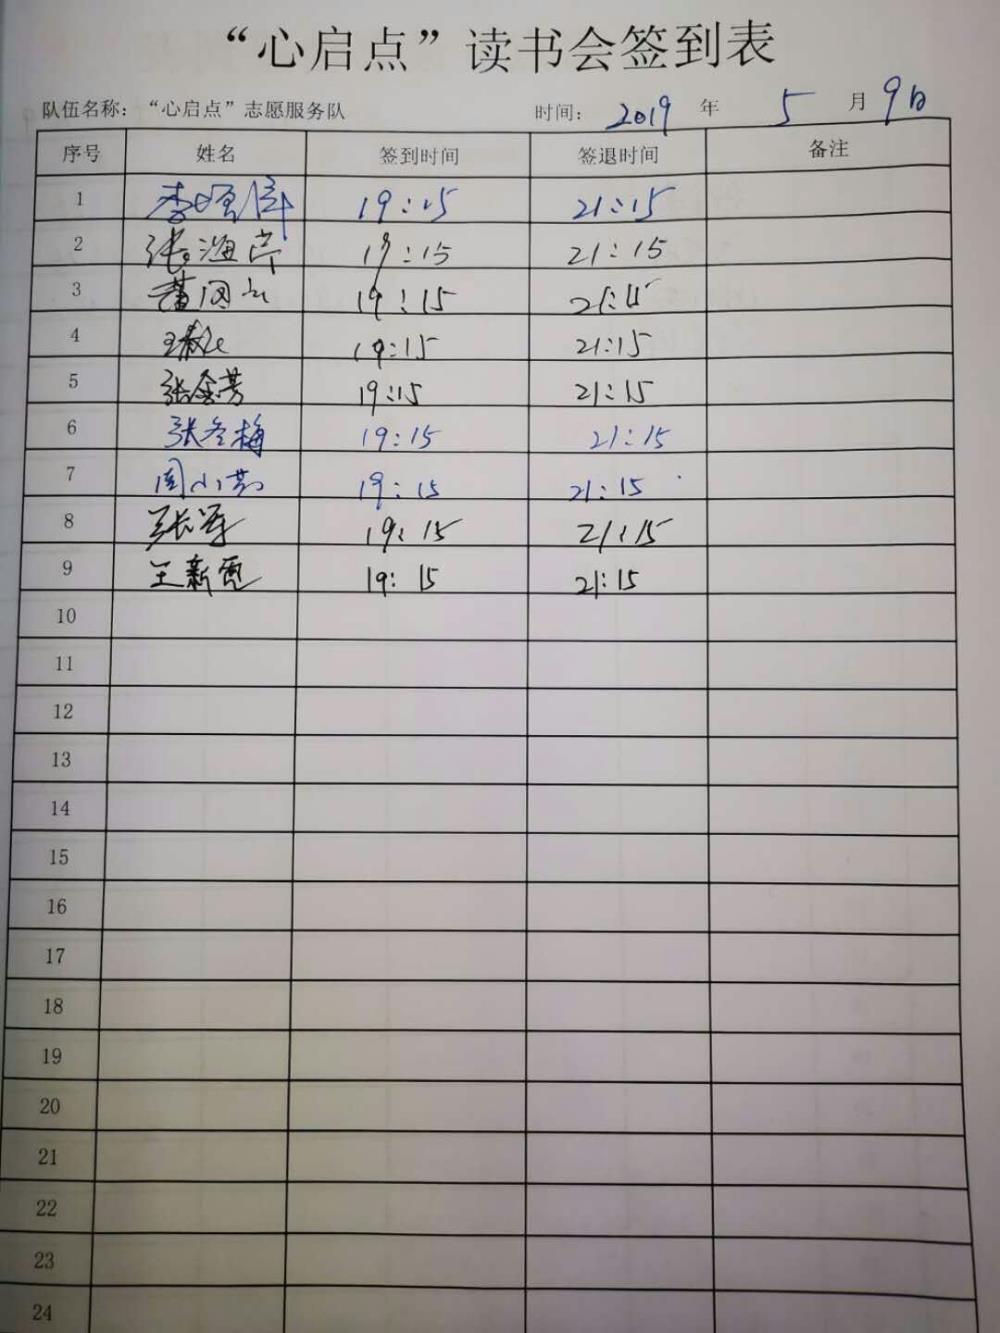 “心启点”读书会签到表
队伍名称：“心启点”志愿服务队 时间：2019 年 5 月 9日
序号 姓名 签到时间 签退时间 备注
1 19:15 21:15
2 张海芹 19:15 21:15
3 19:15 21:15
4 19:15 21:15
5 张金芳 19:15 21:15
6 张冬梅 19:15 21:15
7 周小莉 19:15 21:15
8 张军 19:15 21:15
9 王新霞 19:15 21:15
10
11
12
13
14
15
16
17
18
19
20
21
22
23
24